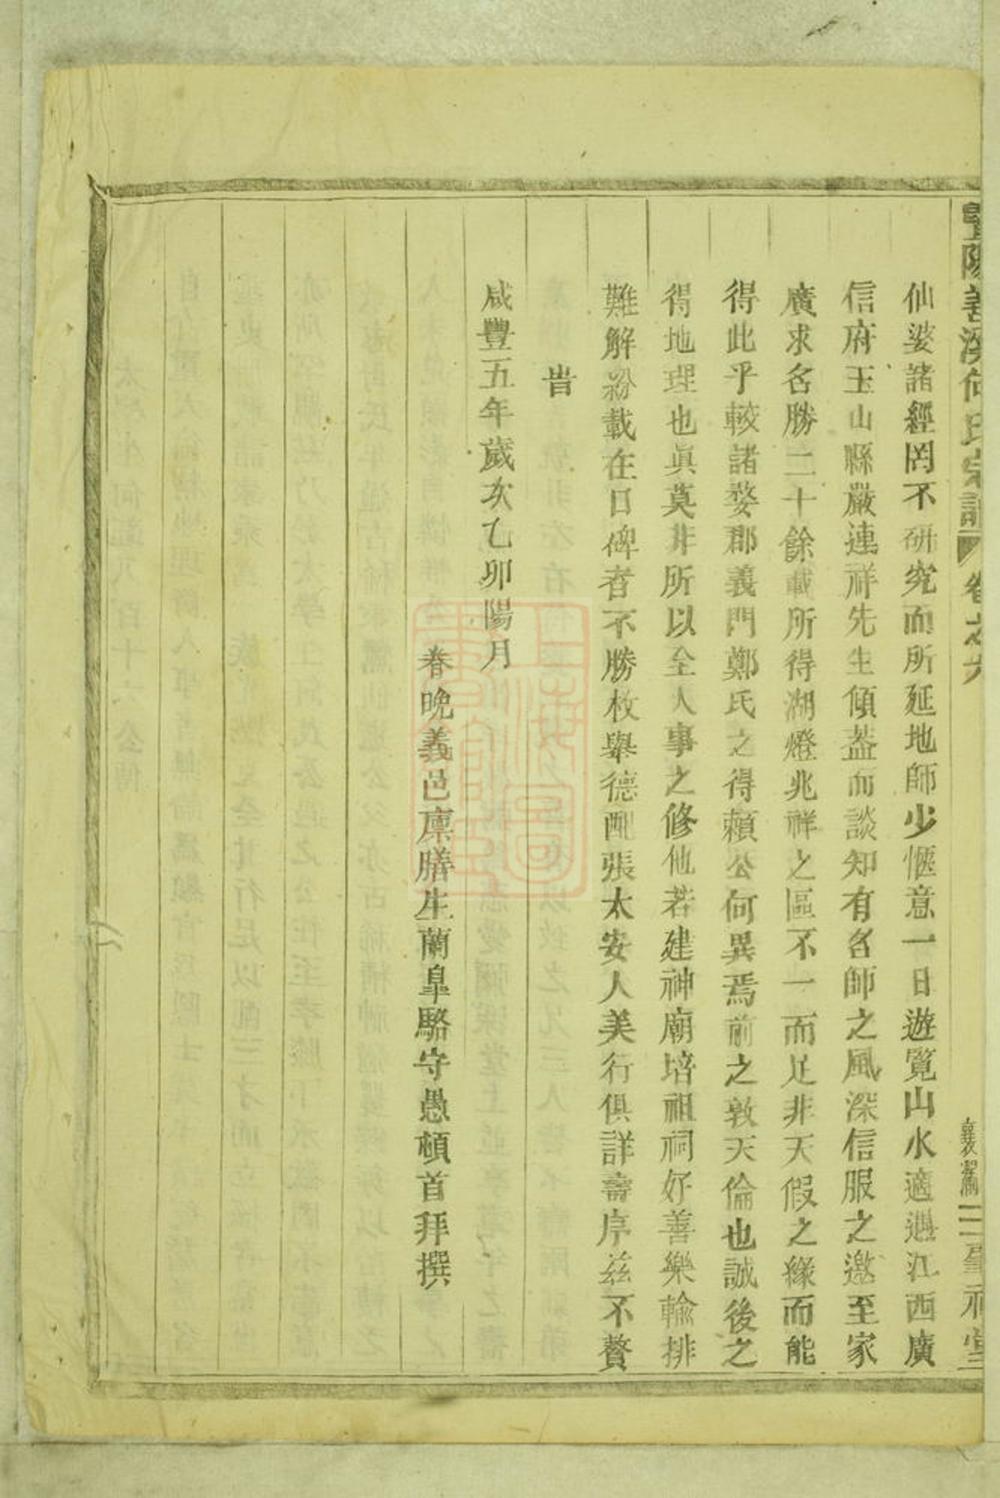 暨陽善溪何氏宗譜 卷之六
仙婆諸經罔不研究而所延地師少愜意一日遊覽山水適遇江西廣
信府玉山縣嚴連祥先生傾葢而談知有名師之風深信服之邀至家
廣求名勝二十餘載所得湖燈兆祥之區不一而足非天假之緣而能
得此乎較諸婺郡義門鄭氏之得賴公何異焉前之敦天倫也誠後之
得地理也眞莫非所以全人事之修他若建神廟培祖祠好善樂輸排
難解紛載在口碑者不勝枚舉德配張太安人美行俱詳壽序兹不贅
旹
咸豐五年歲次乙卯陽月
春晚義邑廪膳生蘭臯駱守愚頓首拜撰